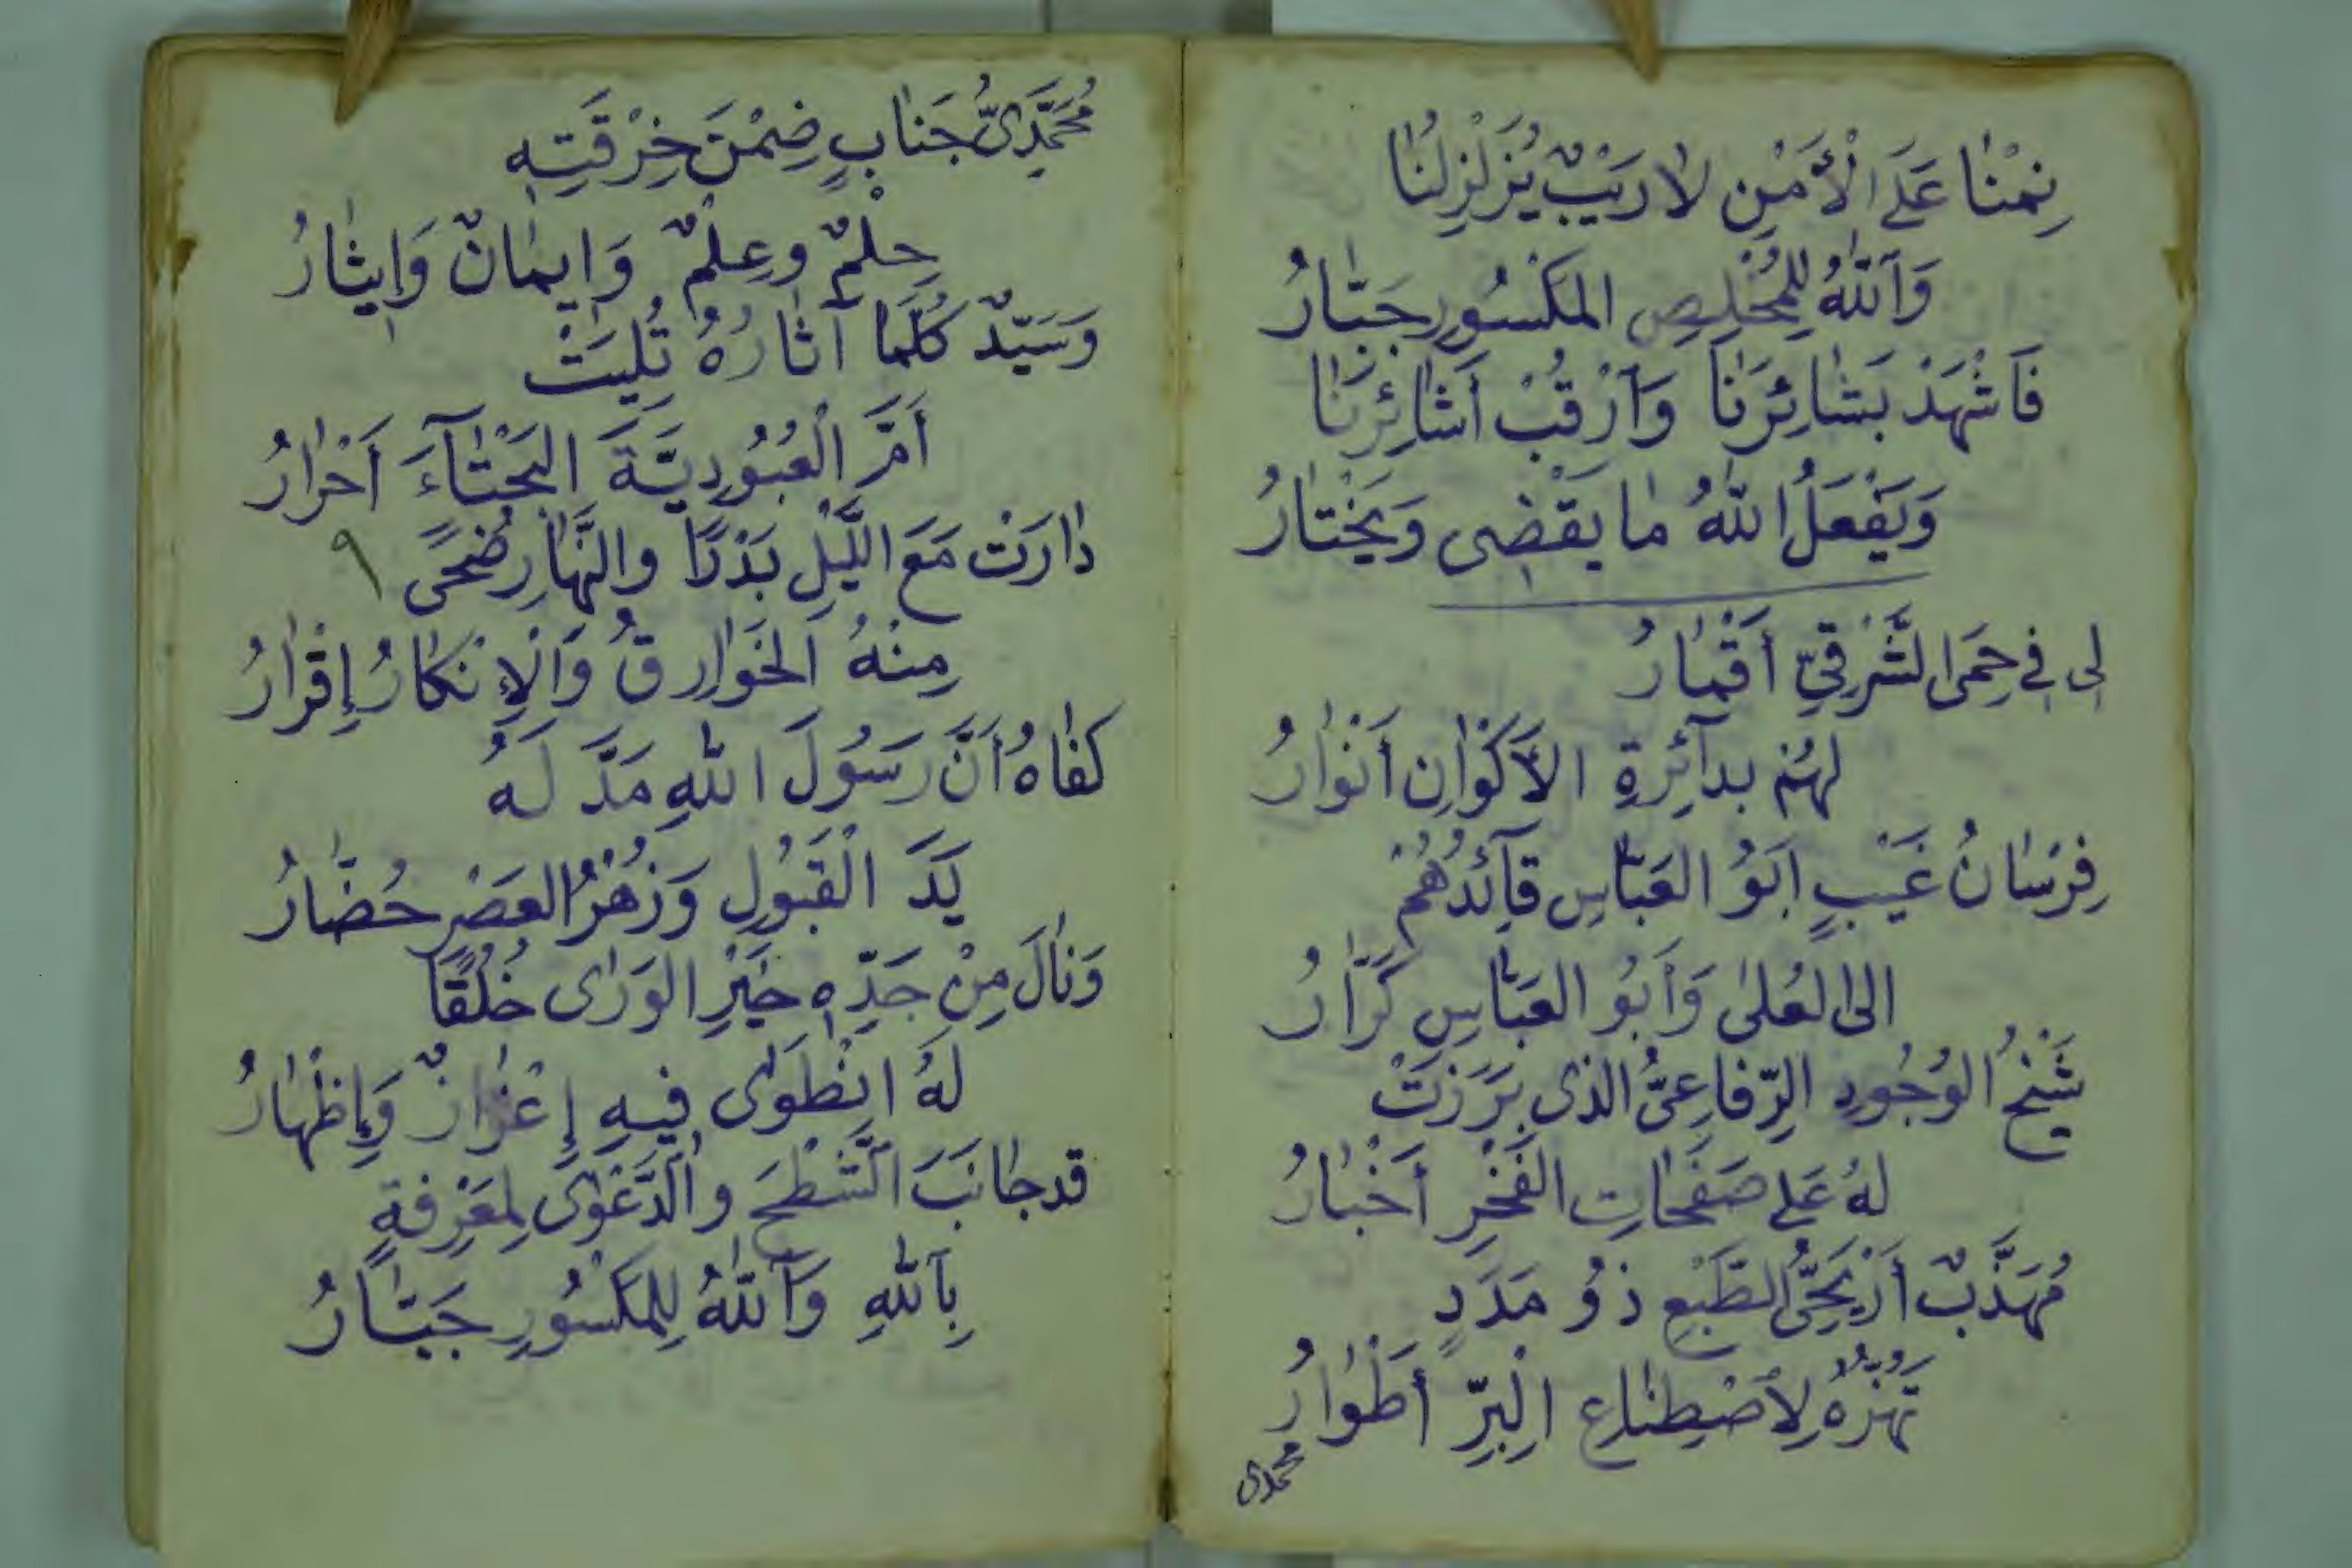 نِمْنَا عَلَى الْأَمْنِ لَا رَيْبٌ يُزَلْزِلُنَا
وَاللّٰهُ لِلْمُخْلِصِ المَكْسُورِ جَبَّارُ
فَاشْهَدْ بَشَائِرَنَا وَارْقُبْ أَشَائِرَنَا
وَيَفْعَلُ اللّٰهُ مَا يَقْضِى وَيَخْتَارُ
لِى فِى حِمَى الشَّرْقِيِّ أَقْمَارُ
لَهُمْ بِدَآئِرَةِ الأَكْوَانِ أَنْوَارُ
فِرْسَانُ غَيْبٍ اَبُو العَبَّاسِ قَآئِدُهُمْ
الى العُلىٰ وَأَبُو العَبَّاسِ كَرَّارُ
شَيْخُ الوُجُودِ الرِّفَاعِىُّ الذى بَرَزَتْ
لهُ عَلى صَفَحَاتِ الفَخْرِ أَخْبَارُ
مُهَذَّبٌ أَرْيَحِىُّ الطَّبْعِ ذُو مَدَدٍ
تَهُزُّهُ لِاصْطِنَاعِ الْبِرِّ أَطْوَارُ
محمدى
مُحَمَّدِىُّ جَنَابٍ ضِمْنَ خِرْقَتِهِ
حِلْمٌ وعِلْمٌ وَإِيمَانٌ وَإِيثَارُ
وَسَيِّدٌ كُلَّمَا آثَارُهُ تُلِيَتْ
أَمَّ الْعُبُودِيَّةَ البَحْتَآءَ أَحْرَارُ
دَارَتْ مَعَ اللَّيْلِ بَدْرًا والنَّهَارِ ضُحًى ٩
مِنْهُ الخَوَارِقُ وَالْإِنْكَارُ إِقْرَارُ
كَفَاهُ أَنَّ رَسُولَ اللّٰهِ مَدَّ لَهُ
يَدَ الْقَبُولِ وَزُهْرُ العَصْرِ حُضَّارُ
وَنَالَ مِنْ جَدِّهِ خَيْرِ الوَرَى خُلُقًا
لَهُ انْطَوَى فِيهِ إِعْزَازٌ وَإِظْهَارُ
قد جَانَبَ الشَّطْحَ والدَّعْوَى لِمَعْرِفَةٍ
بِاللّٰهِ وَاللّٰهُ لِلمَكْسُورِ جَبَّارُ